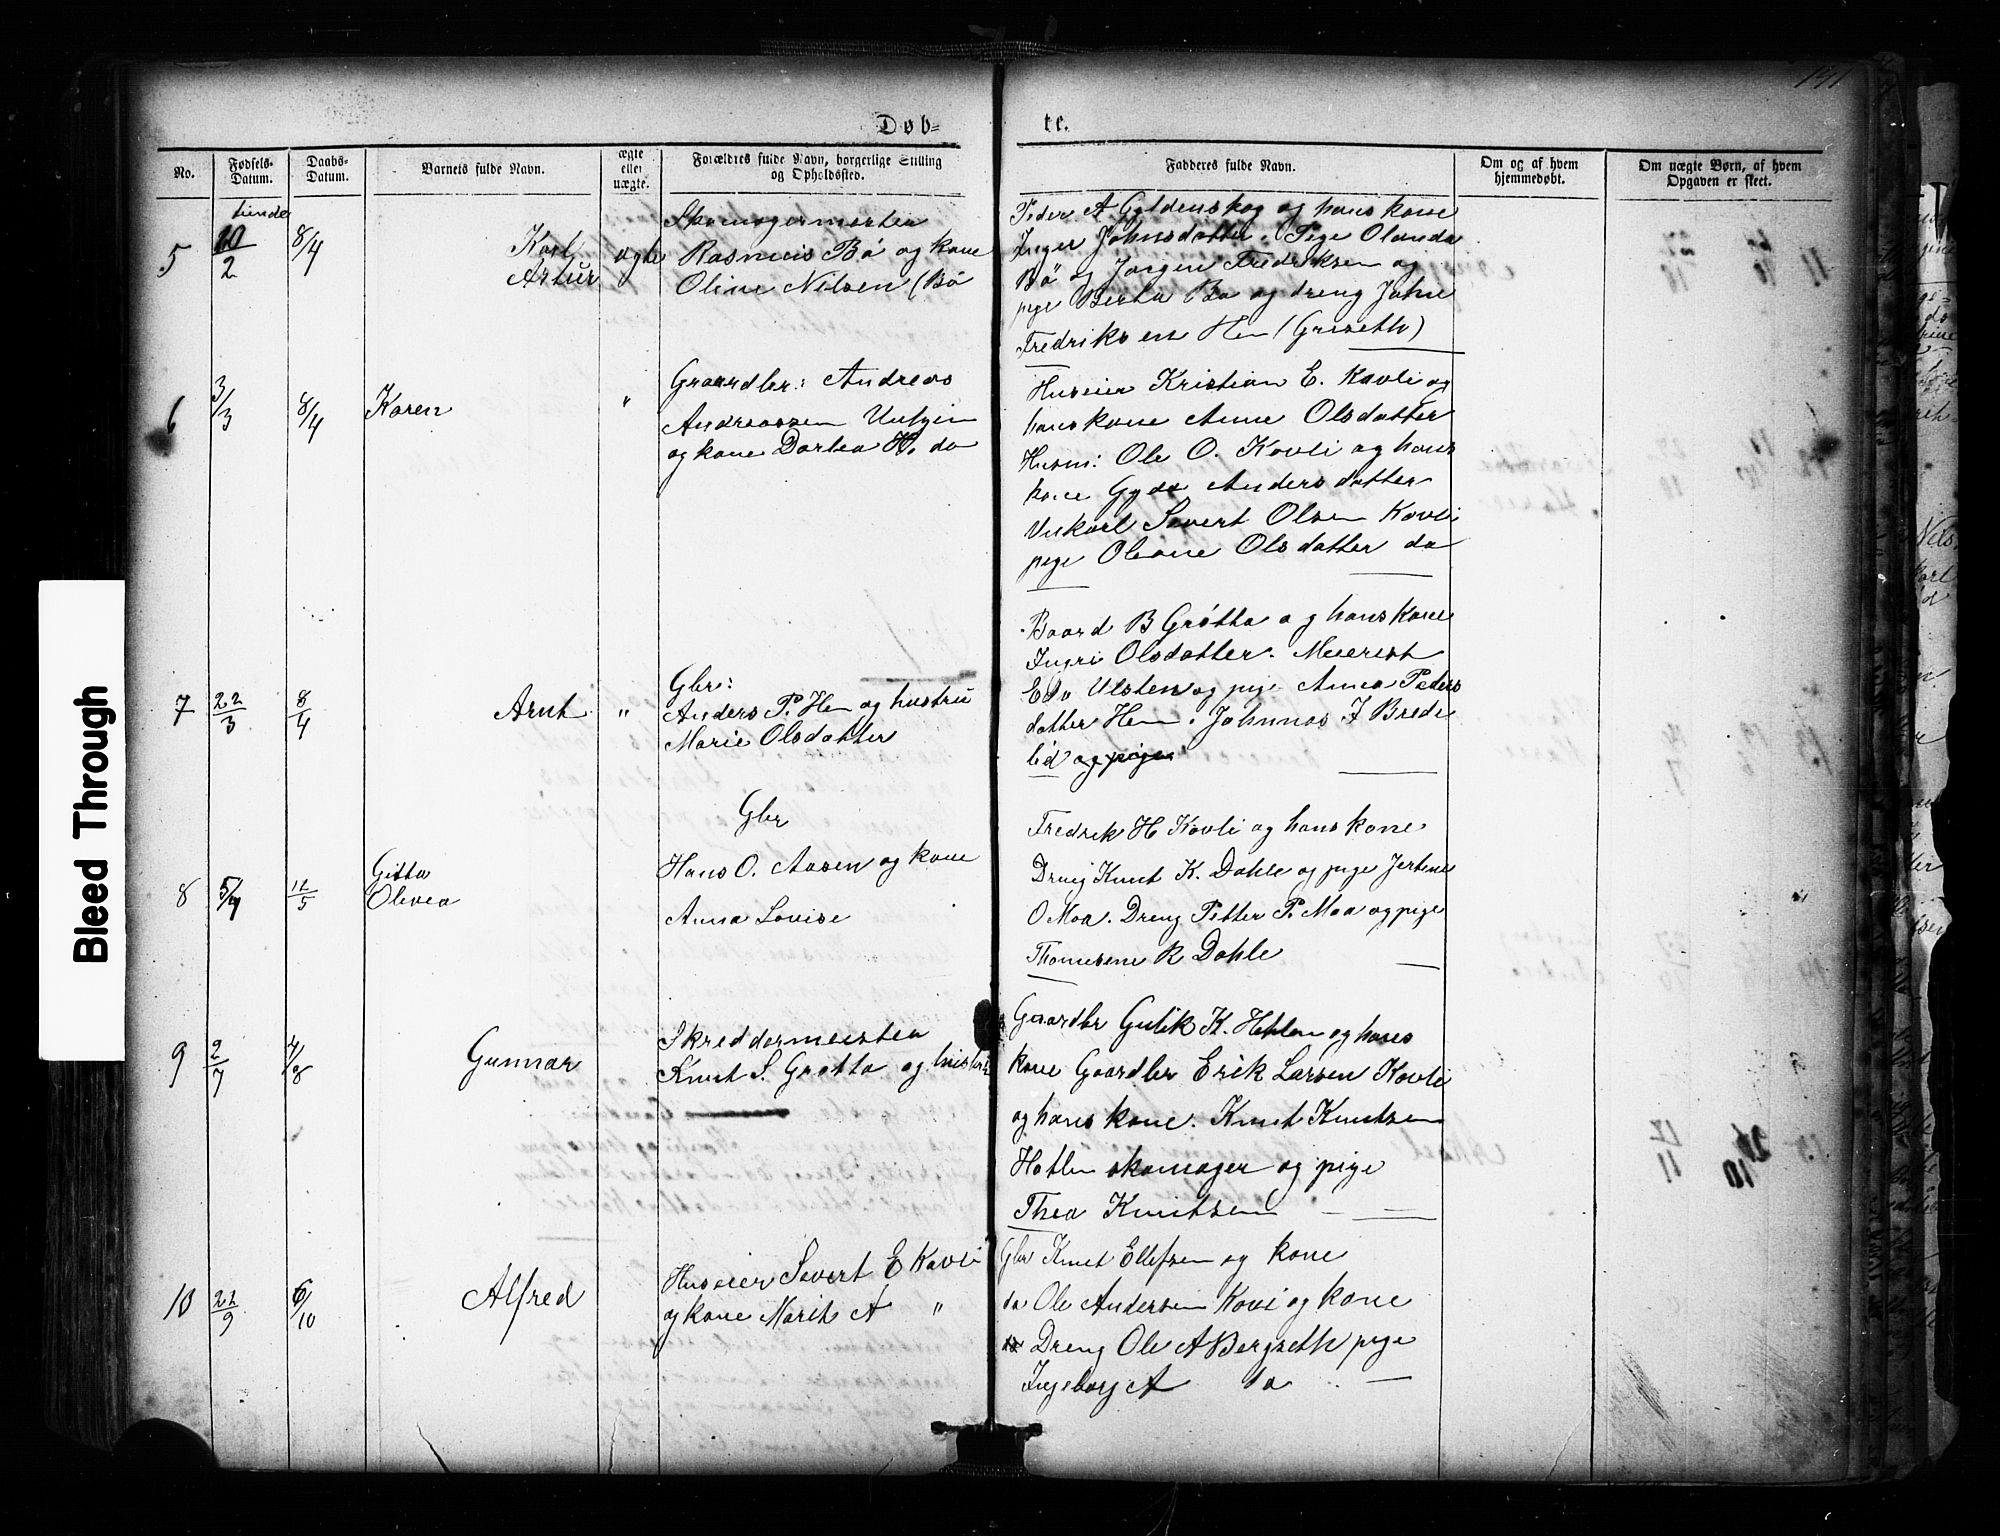 191
Døb-
te.
No.
Fødsels-
Datum.
Daabs-
Datum.
Barnets fulde Navn.
ægte
eller
uægte.
Forældres fulde Navn, borgerlige Stilling
og Opholdssted.
Faddernes fulde Navn.
Om og af hvem
hjemmedøbt.
Om uægte Børn, af hvem
Opgaven er skeet.
5
10/2
8/4
Karl
Artur
ægte
Skomagermester
Rasmus Bö og kone
Oline Nilsen (Bö
Peder A Gyldenskog og hans kone
Inger Johnsdatter. Pige Olanda
Bö og Jörgen Fredriksen og
pige Berta Bö og dreng Johne
Fredriksen Hen (Griseth)
6
3/3
8/4
Karen
"
Gaardbr: Andreas
Andreassen
og kone Dortea H. do
Huseier Kristian E. Kavli og
hans kone Anne Olsdatter
Husm: Ole O. Kavli og hans
kone Gyda Andersdatter
Ungkarl Severt Olsen Kavli
pige Oleane Olsdatter do
7
22/3
8/4
Arnt
"
Gbr:
Anders P. Hen og hustru
Marie Olsdatter
Baard B Grötta og hans kone
Ingri Olsdatter. Meierist
Edv Ulsten og pige Anna Peders
datter Hen. Johannas J Brede
lid og pige
8
5/4
12/5
Gitta
Olivea
Gbr
Hans O. Aasen og kone
Anna Lovise
Fredrik H Kavli og hans kone
Dreng Knut K. Dahle og pige Jertine
O Moa. Dreng Petter P. Moa og pige
Thomasene R Dahle
9
2/7
4/8
Gunnar
Skreddermester
Knut S. Grötta og hustru
Gaardbr Gulik K. Hatlen og hans
kone Gaardbr Erik Larsen Kavli
og hans kone. Knut Knutsen
Hatlen skomager og pige
Thea Knutsen
10
22/9
6/10
Alfred
Huseier Severt E Kavli
og kone Marit A "
Gbr Knut Ellefsen og kone
do Ole Andersen Kavli og kone
Dreng Ole A Bergseth pige
Ingeborg A do
Bleed Through